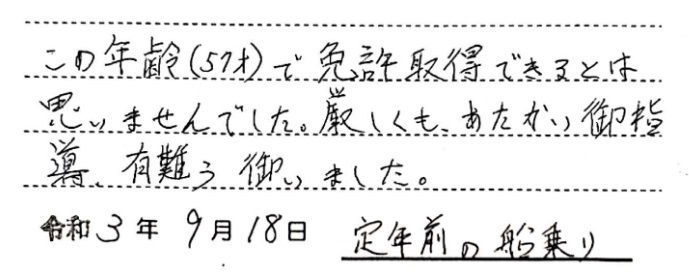 この年齢(57才)で免許取得できるとは
思いませんでした。厳しくも、あたたかい御指
導、有難う御いました。
令和3年9月18日 定年前の船乗り